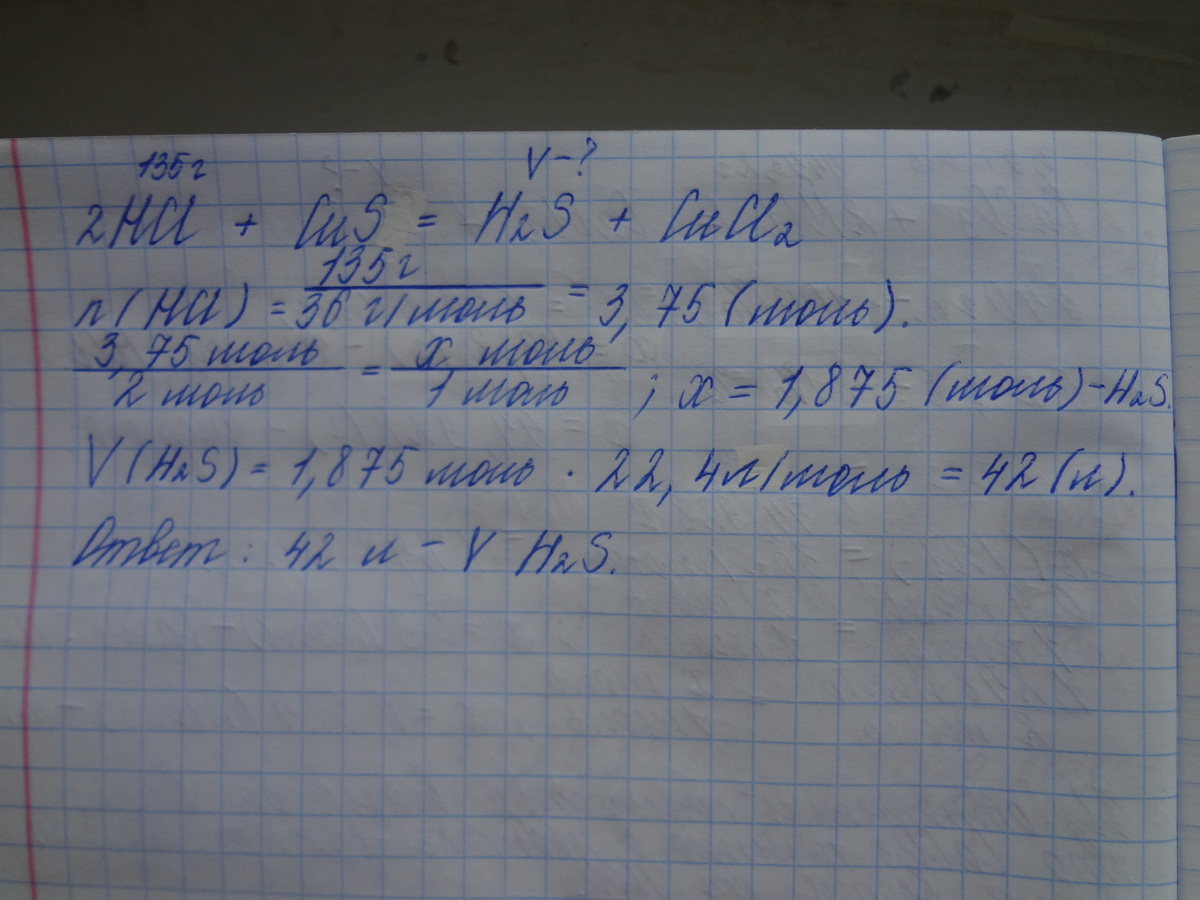 135г V-?
2HCl + CuS = H2S + CuCl2
n(HCl) = 135г / 36 г/моль = 3,75 (моль).
3,75 моль / 2 моль = x моль / 1 моль ; x = 1,875 (моль) - H2S.
V(H2S) = 1,875 моль · 22,4л/моль = 42 (л).
Ответ: 42 л - V H2S.